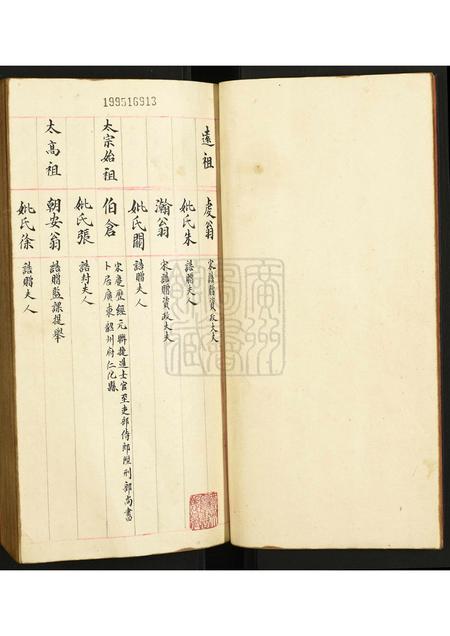 199516913
遠祖
虔翁 宋誥贈資政大夫
妣氏朱 誥贈夫人
瀚翁 宋誥贈資政大夫
妣氏關 誥贈夫人
太宗始祖
伯倉 宋慶歷經元聯捷進士官至吏部侍郎陞刑部尚書
卜居廣東韶州府仁化縣
妣氏張 誥封夫人
太高祖
朝安翁 誥贈監課提舉
妣氏徐 誥贈夫人